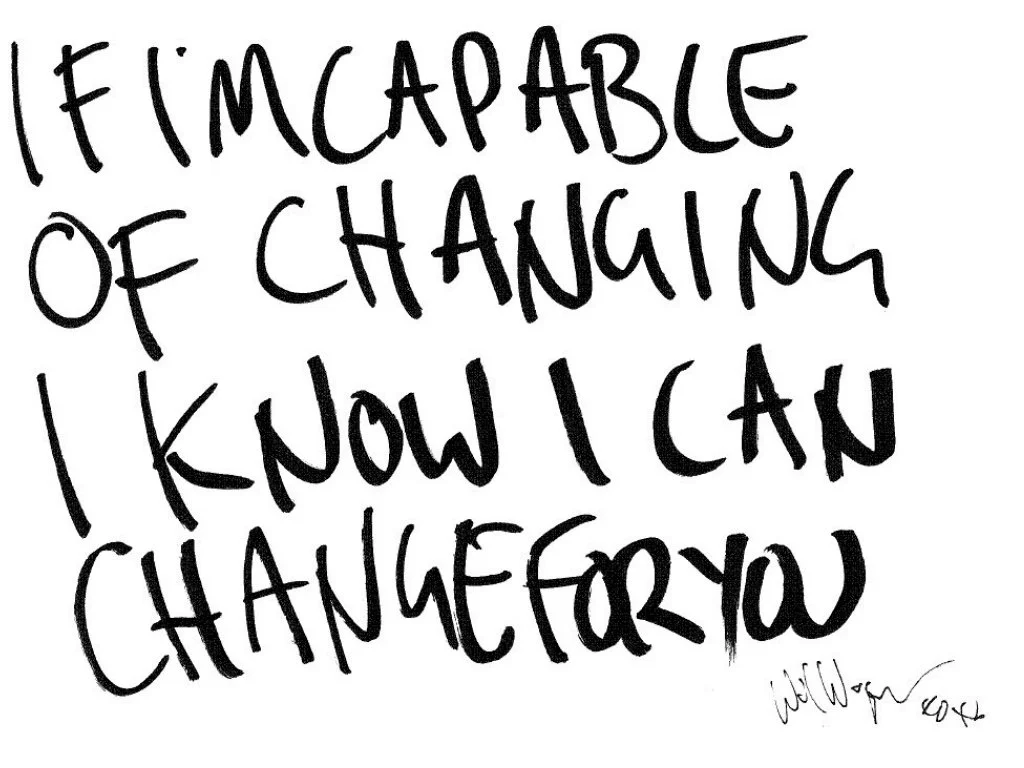 IF I'M CAPABLE
OF CHANGING
I KNOW I CAN
CHANGE FOR YOU
Will Wagner xoxx